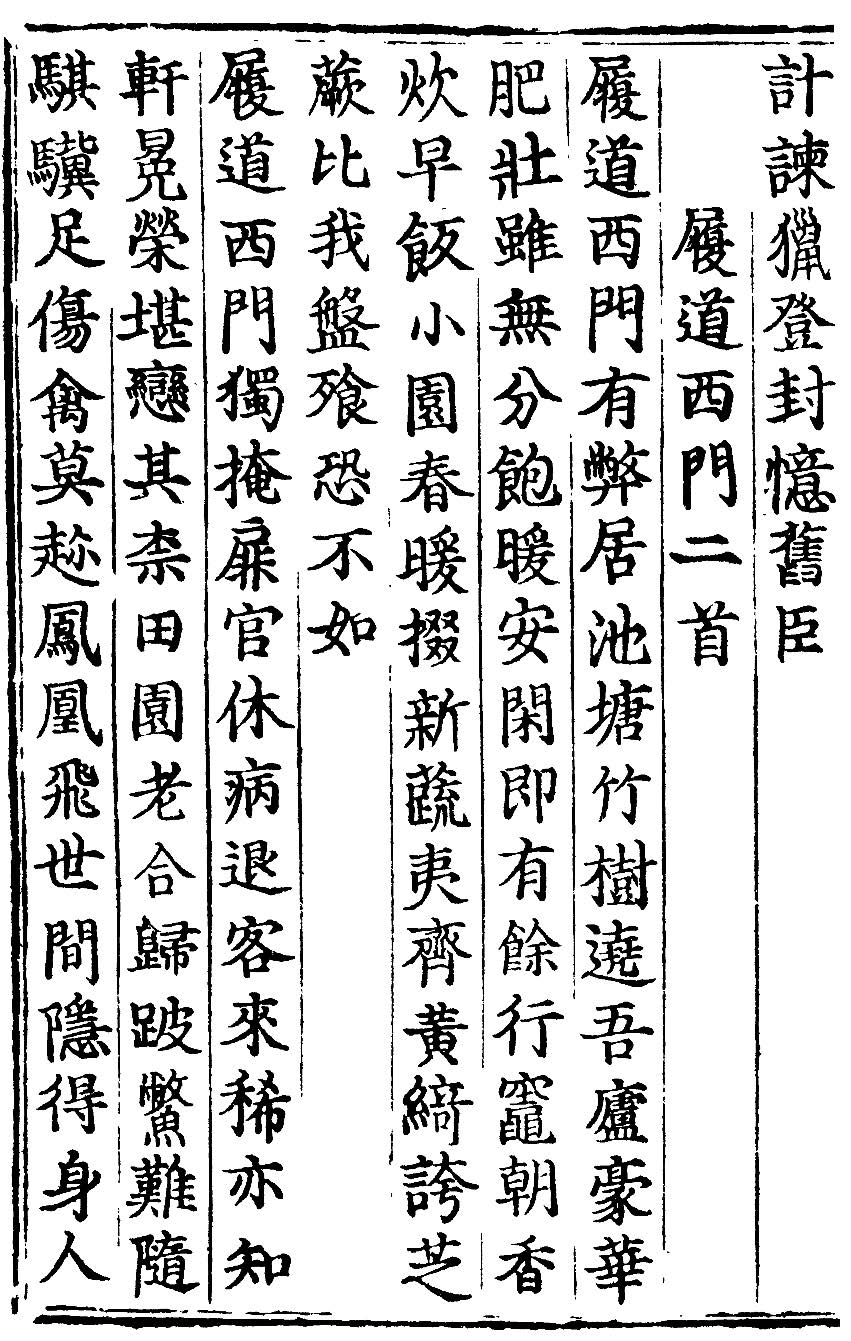 計諫獵登封憶舊臣
履道西門二首
履道西門有弊居池塘竹樹遶吾廬豪華
肥壯雖無分飽暖安閑即有餘行竈朝香
炊早飯小園春暖掇新蔬夷齊黃綺誇芝
蕨比我盤飱恐不如
履道西門獨掩扉官休病退客來稀亦知
軒冕榮堪戀其柰田園老合歸跛鱉難隨
騏驥足傷禽莫趂鳳凰飛世間隱得身人